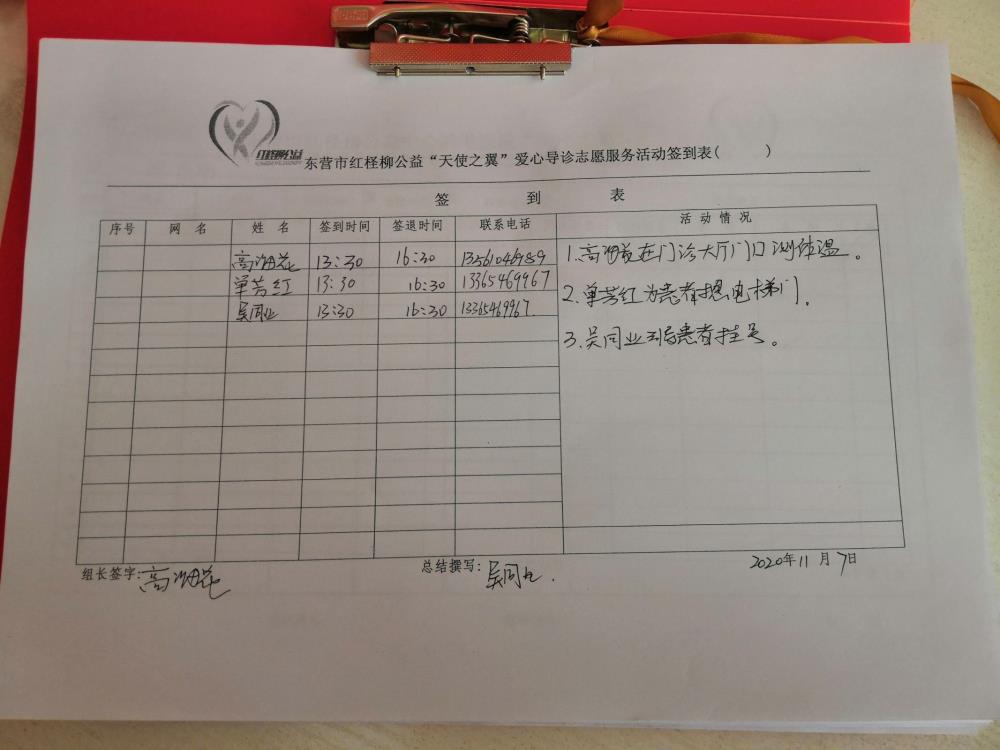 红柽柳公益
东营市红柽柳公益“天使之翼”爱心导诊志愿服务活动签到表(      )
签 到 表
序号 网 名 姓 名 签到时间 签退时间 联系电话 活 动 情 况
高海花 13:30 16:30 13561046989
单芳红 13:30 16:30 13365469967
吴同业 13:30 16:30 13365469967.
1.高海花在门诊大厅门口测体温。
2.单芳红为患者摁电梯门.
3.吴同业 患者挂号。
组长签字:高海花 总结撰写:吴同业. 2020年11月7日